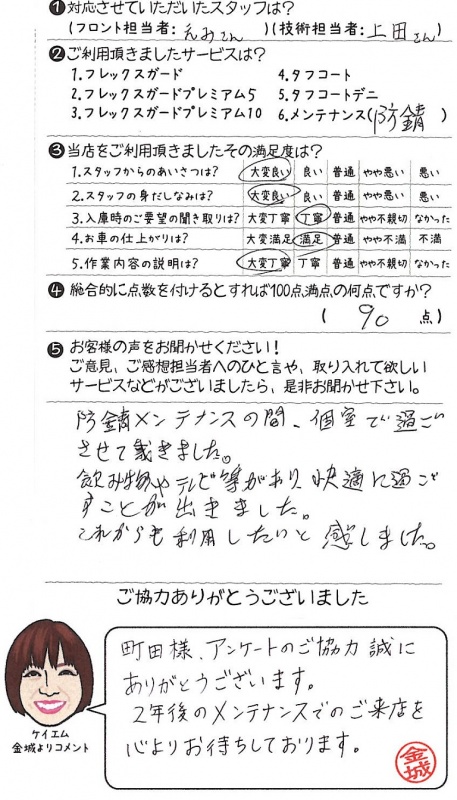 ❶対応させていただいたスタッフは?
(フロント担当者: えみさん )(技術担当者: 上田さん )
❷ご利用頂きましたサービスは?
1.フレックスガード 4.タフコート
2.フレックスガードプレミアム5 5.タフコートデニ
3.フレックスガードプレミアム10 6.メンテナンス(防錆 )
❸当店をご利用頂きましたその満足度は?
1.スタッフからのあいさつは? 大変良い 良い 普通 やや悪い 悪い
2.スタッフの身だしなみは? 大変良い 良い 普通 やや悪い 悪い
3.入庫時のご要望の聞き取りは? 大変丁寧 丁寧 普通 やや不親切 なかった
4.お車の仕上がりは? 大変満足 満足 普通 やや不満 不満
5.作業内容の説明は? 大変丁寧 丁寧 普通 やや不親切 なかった
❹総合的に点数を付けるとすれば100点満点の何点ですか?
( 90 点)
❺お客様の声をお聞かせください!
ご意見、ご感想担当者へのひと言や、取り入れて欲しい
サービスなどがございましたら、是非お聞かせ下さい。
防錆メンテナンスの間、個室で過ご
させて戴きました。
飲み物やテレビ等があり、快適に過ご
すことが出きました。
これからも利用したいと感じました。
ご協力ありがとうございました
町田様、アンケートのご協力誠に
ありがとうございます。
2年後のメンテナンスでのご来店を
心よりお待ちしております。
金城
ケイエム
金城よりコメント